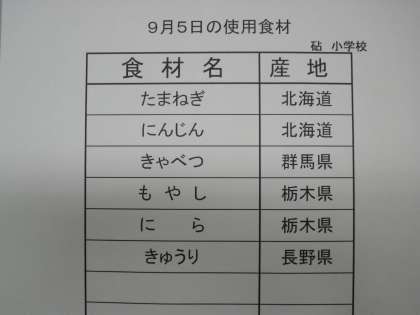 9月5日の使用食材
砧 小学校
食材名 産地
たまねぎ 北海道
にんじん 北海道
きゃべつ 群馬県
もやし 栃木県
にら 栃木県
きゅうり 長野県